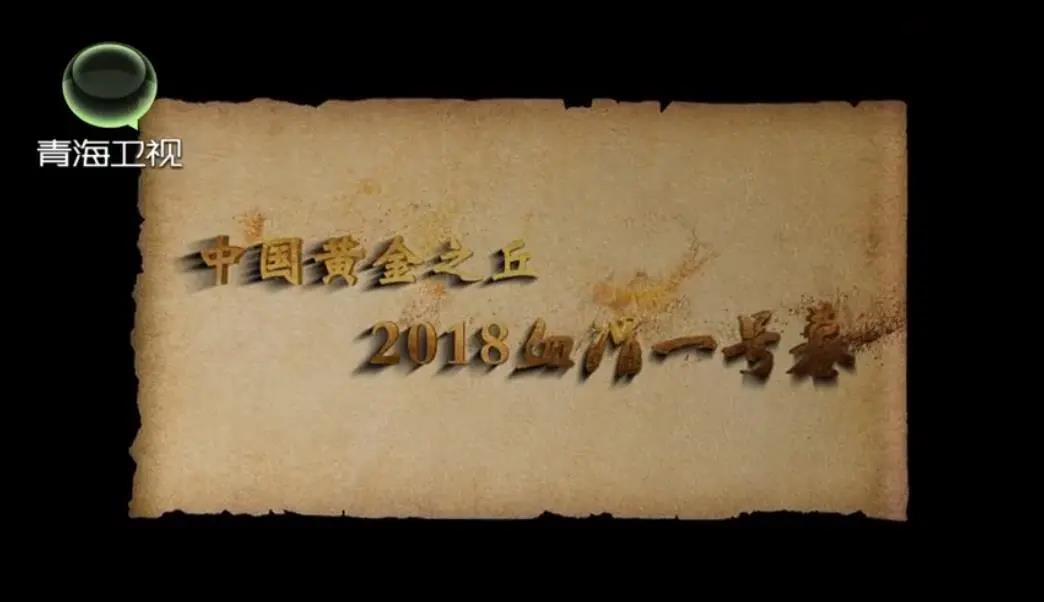 青海卫视
中国黄金之丘
2018血渭一号墓